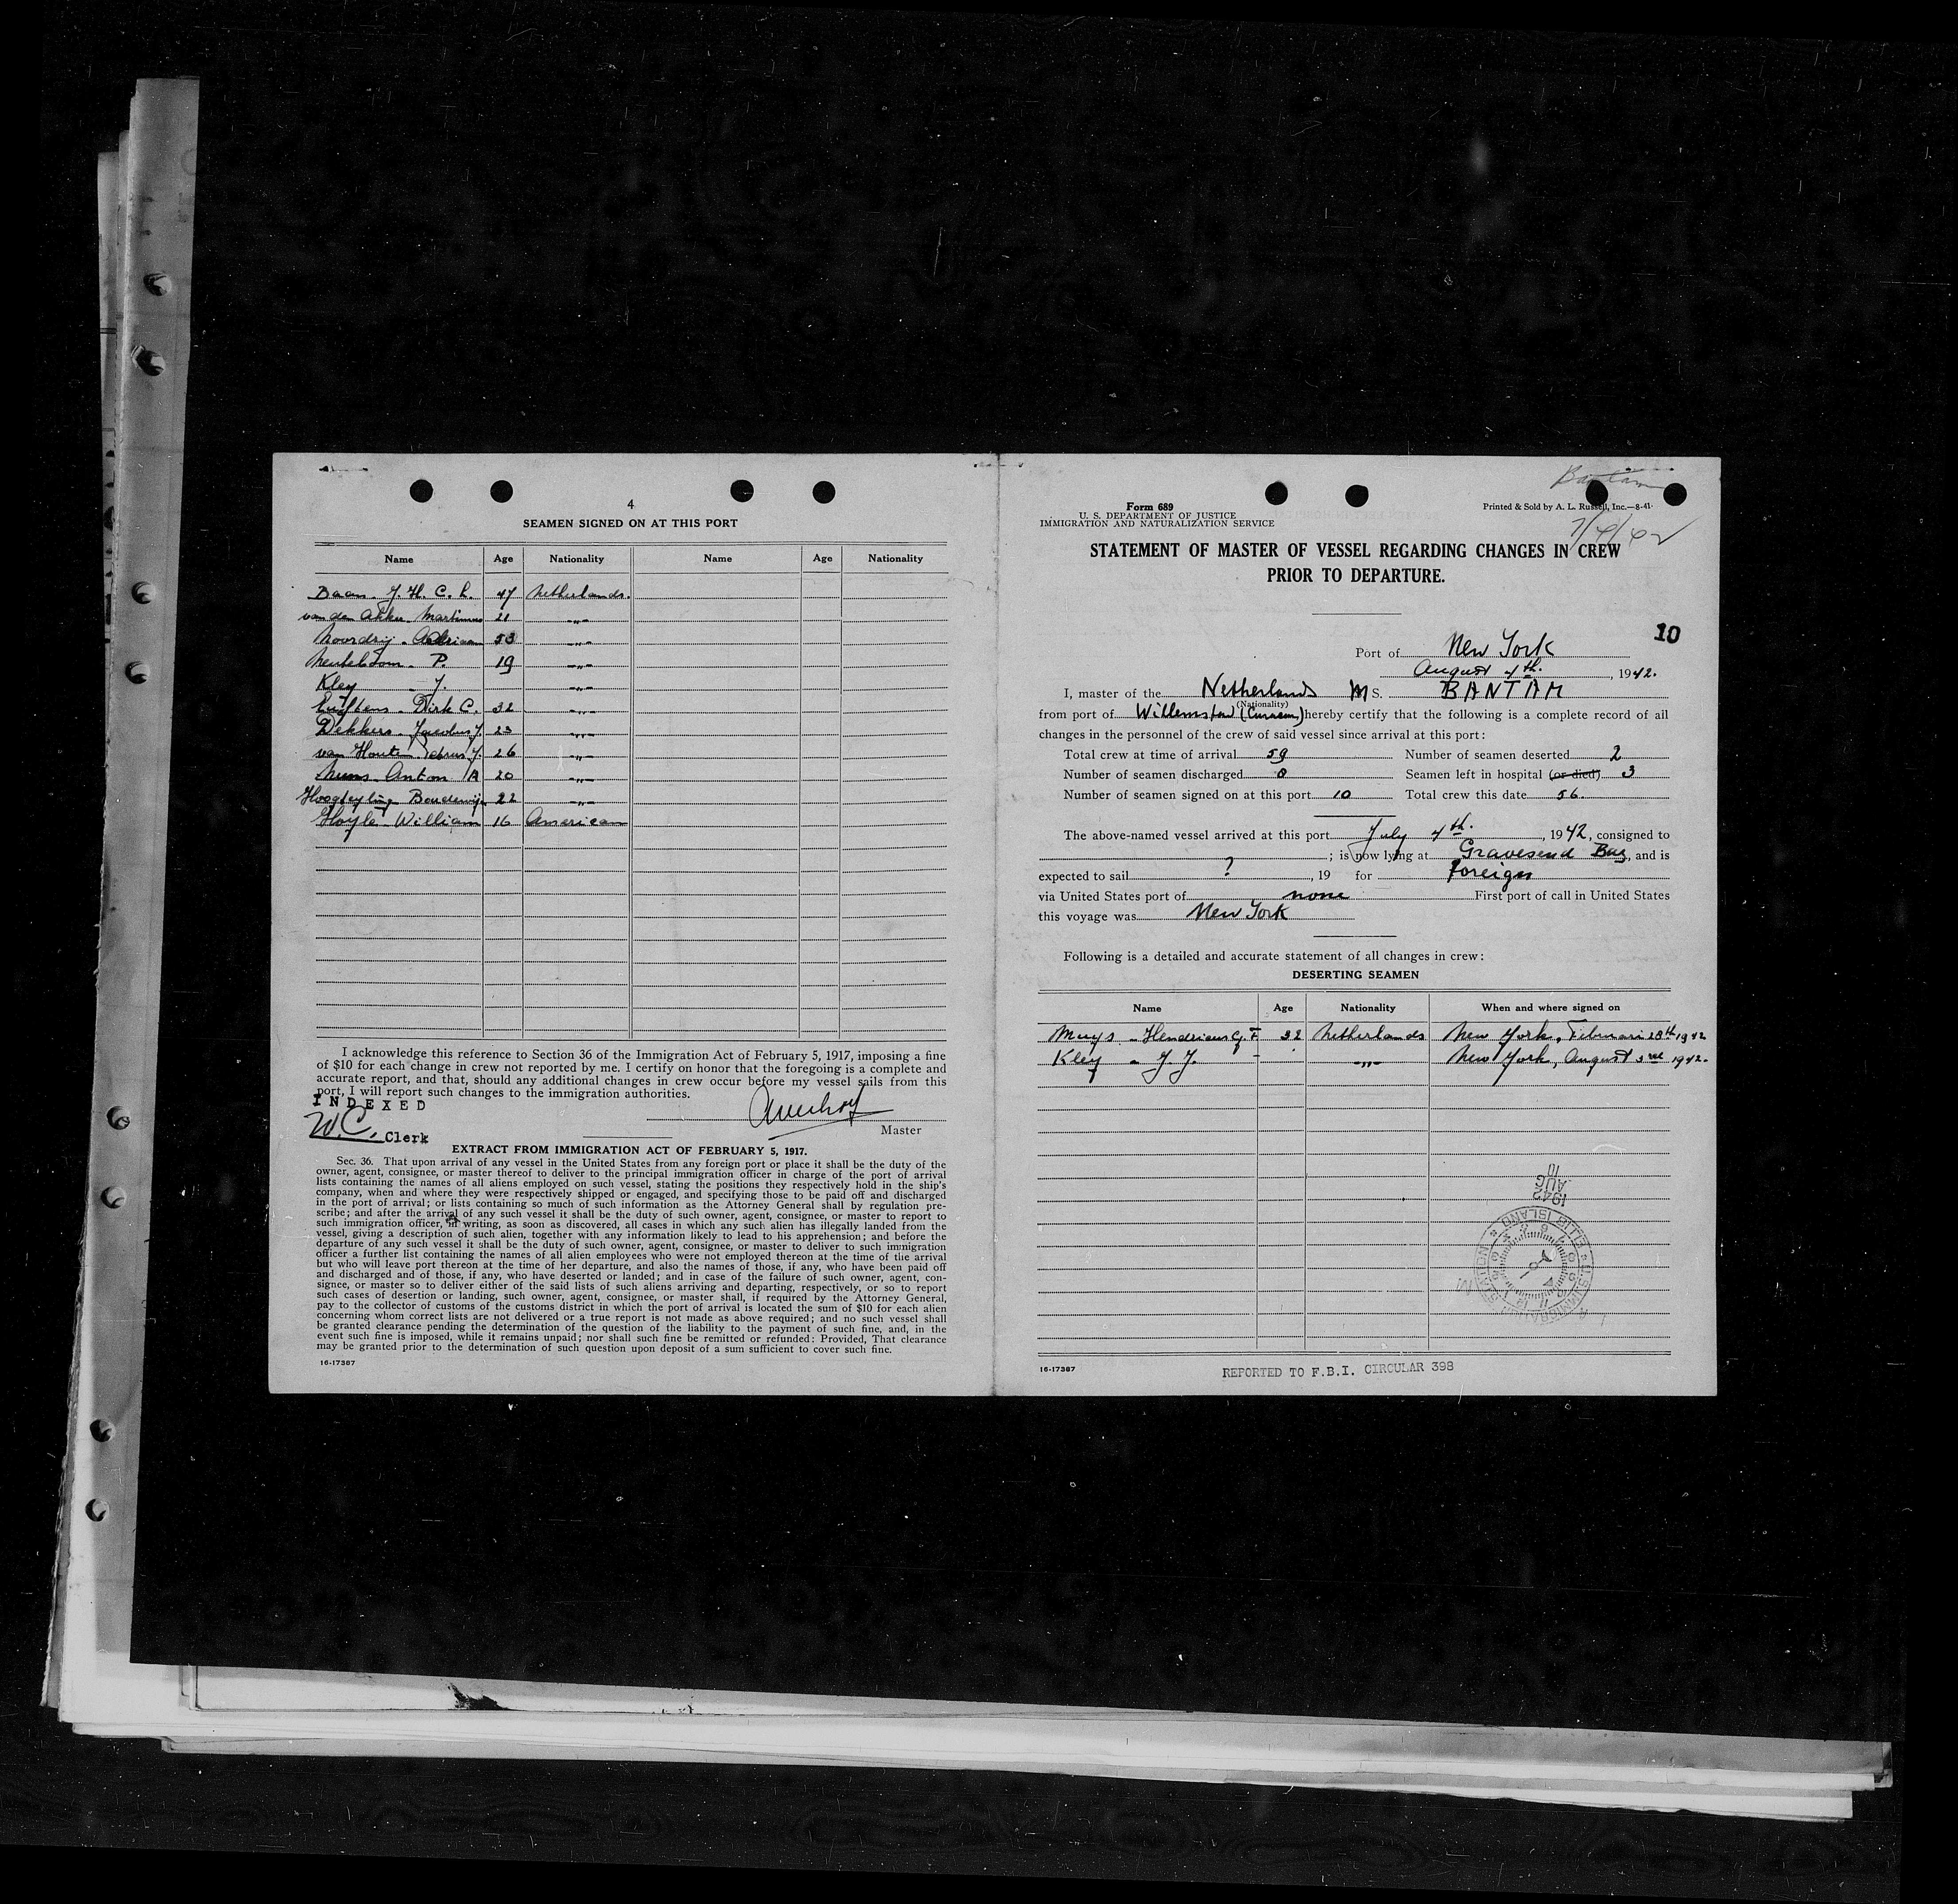 4
SEAMEN SIGNED ON AT THIS PORT
Name Age Nationality Name Age Nationality
Baan - J. H. C. L. 47 Netherlands.
van den Akker Martinus 21 -„-
Noordzij - Adriaan 53 -„-
P. 19 -„-
Kley - J. -„-
- Dirk C. 32 -„-
Dekkers - Jacobus J. 23 -„-
van Houte Petrus J. 26 -„-
Anton A 20 -„-
Hoogteyling Boudewijn 22 -„-
Hoyle - William 16 American
I acknowledge this reference to Section 36 of the Immigration Act of February 5, 1917, imposing a fine
of $10 for each change in crew not reported by me. I certify on honor that the foregoing is a complete and
accurate report, and that, should any additional changes in crew occur before my vessel sails from this
port, I will report such changes to the immigration authorities.
INDEXED
W.C. Clerk
Master
EXTRACT FROM IMMIGRATION ACT OF FEBRUARY 5, 1917.
Sec. 36. That upon arrival of any vessel in the United States from any foreign port or place it shall be the duty of the
owner, agent, consignee, or master thereof to deliver to the principal immigration officer in charge of the port of arrival
lists containing the names of all aliens employed on such vessel, stating the positions they respectively hold in the ship's
company, when and where they were respectively shipped or engaged, and specifying those to be paid off and discharged
in the port of arrival; or lists containing so much of such information as the Attorney General shall by regulation pre-
scribe; and after the arrival of any such vessel it shall be the duty of such owner, agent, consignee, or master to report to
such immigration officer, in writing, as soon as discovered, all cases in which any such alien has illegally landed from the
vessel, giving a description of such alien, together with any information likely to lead to his apprehension; and before the
departure of any such vessel it shall be the duty of such owner, agent, consignee, or master to deliver to such immigration
officer a further list containing the names of all alien employees who were not employed thereon at the time of the arrival
but who will leave port thereon at the time of her departure, and also the names of those, if any, who have been paid off
and discharged and of those, if any, who have deserted or landed; and in case of the failure of such owner, agent, con-
signee, or master so to deliver either of the said lists of such aliens arriving and departing, respectively, or so to report
such cases of desertion or landing, such owner, agent, consignee, or master shall, if required by the Attorney General,
pay to the collector of customs of the customs district in which the port of arrival is located the sum of $10 for each alien
concerning whom correct lists are not delivered or a true report is not made as above required; and no such vessel shall
be granted clearance pending the determination of the question of the liability to the payment of such fine, and, in the
event such fine is imposed, while it remains unpaid; nor shall such fine be remitted or refunded: Provided, That clearance
may be granted prior to the determination of such question upon deposit of a sum sufficient to cover such fine.
16-17387
Bantam
Form 689
U. S. DEPARTMENT OF JUSTICE
IMMIGRATION AND NATURALIZATION SERVICE
Printed & Sold by A. L. Russell, Inc.—8-41-
7/4/42
STATEMENT OF MASTER OF VESSEL REGARDING CHANGES IN CREW
PRIOR TO DEPARTURE.
10
Port of New York
August 4th. , 1942.
I, master of the Netherlands M S. BANTAM
(Nationality)
from port of Willemstad (Curacao) hereby certify that the following is a complete record of all
changes in the personnel of the crew of said vessel since arrival at this port:
Total crew at time of arrival 59 Number of seamen deserted 2
Number of seamen discharged 8 Seamen left in hospital (or died) 3
Number of seamen signed on at this port 10 Total crew this date 56.
The above-named vessel arrived at this port July 4th. , 1942, consigned to
; is now lying at Gravesend Bay, and is
expected to sail ? , 19 for foreign
via United States port of none First port of call in United States
this voyage was New York
Following is a detailed and accurate statement of all changes in crew:
DESERTING SEAMEN
Name Age Nationality When and where signed on
Muys - Hendricus G. F 32 Netherlands New York, Februari 28th 1942
Kley - J. J. - -„- New York, August 3rd 1942.
1942
AUG
ELLIS ISLAND
16-17387
REPORTED TO F.B.I. CIRCULAR 398